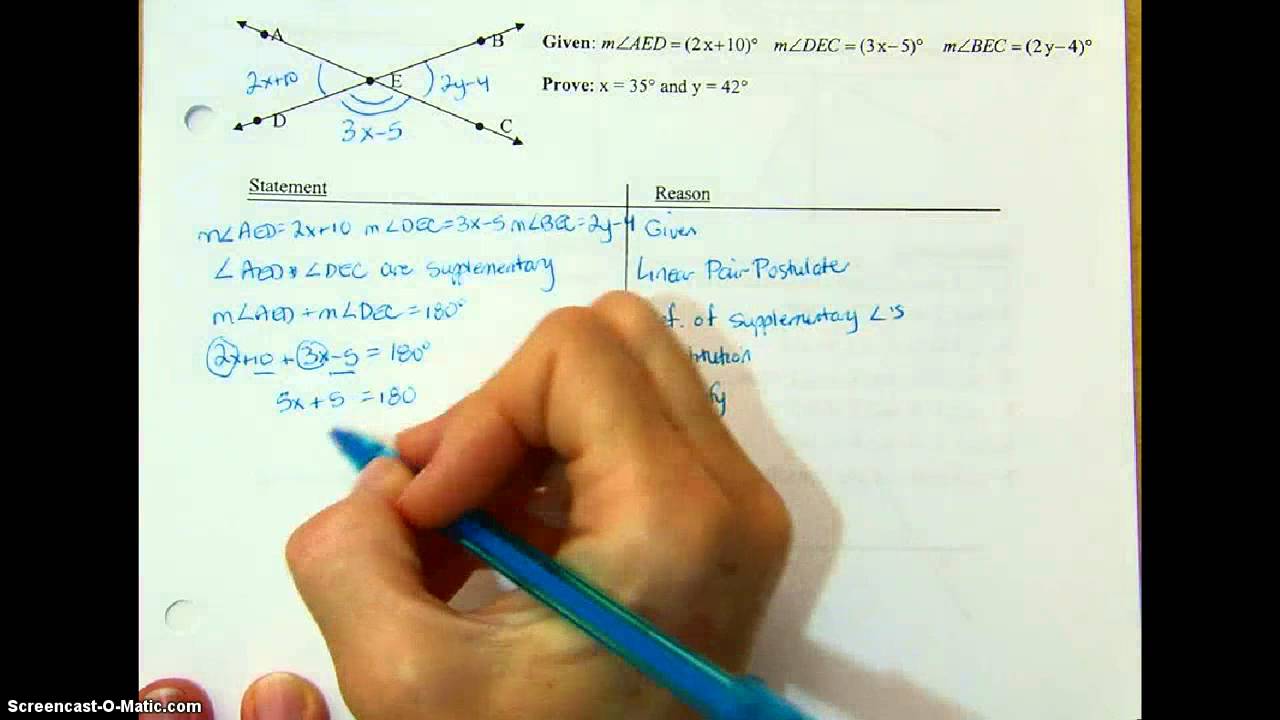 A
B
Given: m∠AED = (2x+10)° m∠DEC = (3x−5)° m∠BEC = (2y−4)°
2x+10
E
2y-4
Prove: x = 35° and y = 42°
D
3x-5
C
Statement
Reason
m∠AED=2x+10 m∠DEC=3x-5 m∠BEC=2y-4 Given
∠AED & ∠DEC are supplementary Linear Pair Postulate
m∠AED + m∠DEC = 180° of supplementary ∠'s
2x+10 + 3x-5 = 180°
5x+5 = 180
Screencast-O-Matic.com